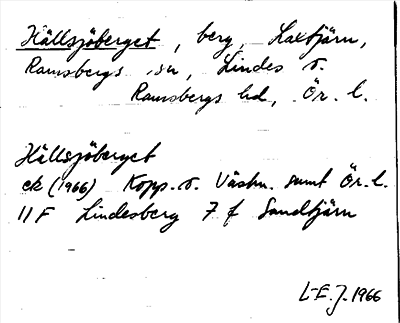 Hällsjöberget, berg, Laxtjärn,
Ramsbergs sn, Lindes o.
Ramsbergs hd, Ör. l.
Hällsjöberget
ek (1966) Kopp. o. Västm. samt Ör. l.
11 F Lindesberg 7 f Sandtjärn
L-E. J. 1966